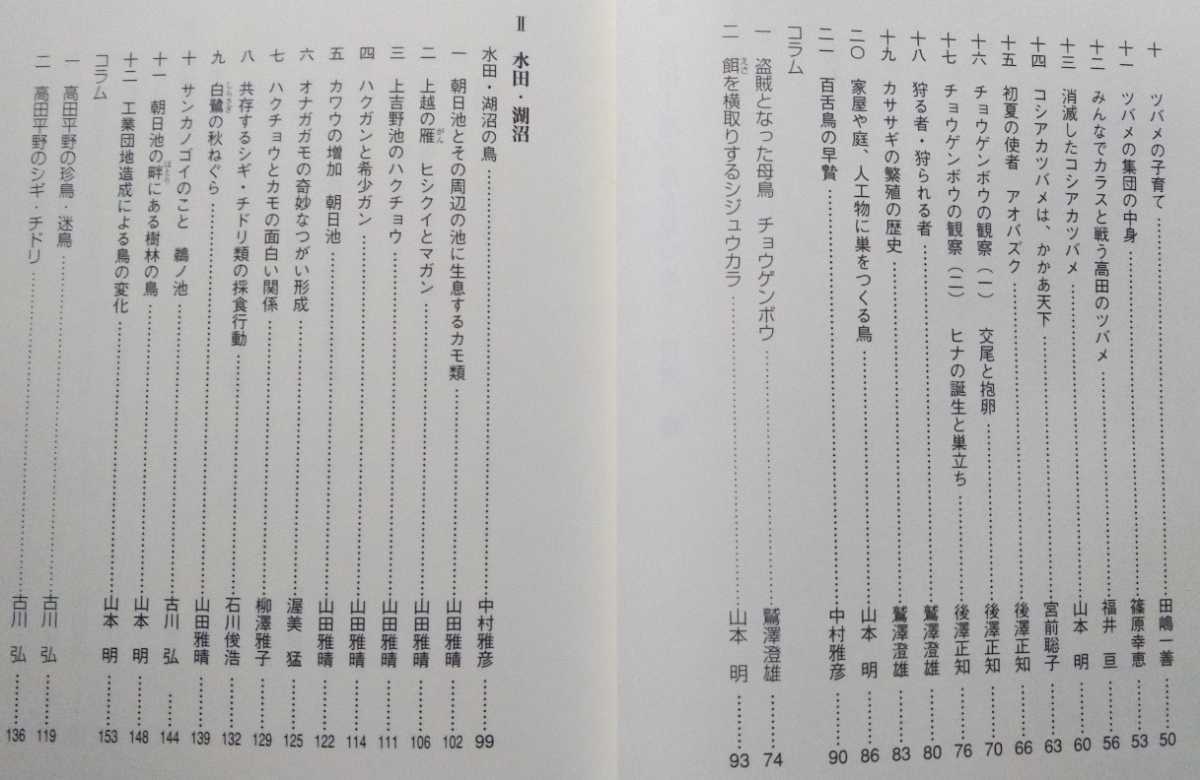 十　ツバメの子育て……田嶋一善……50
十一　ツバメの集団の中身……篠原幸恵……53
十二　みんなでカラスと戦う高田のツバメ……福井　亘……56
十三　消滅したコシアカツバメ……山本　明……60
十四　コシアカツバメは、かかあ天下……宮前聡子……63
十五　初夏の使者　アオバズク……後澤正知……66
十六　チョウゲンボウの観察（一）　交尾と抱卵……後澤正知……70
十七　チョウゲンボウの観察（二）　ヒナの誕生と巣立ち……後澤正知……76
十八　狩る者・狩られる者……鷲澤澄雄……80
十九　カササギの繁殖の歴史……鷲澤澄雄……83
二〇　家屋や庭、人工物に巣をつくる鳥……山本　明……86
二一　百舌鳥の早贄……中村雅彦……90
コラム
一　盗賊となった母鳥　チョウゲンボウ……鷲澤澄雄……74
二　餌を横取りするシジュウカラ……山本　明……93
Ⅱ　水田・湖沼
水田・湖沼の鳥……中村雅彦……99
一　朝日池とその周辺の池に生息するカモ類……山田雅晴……102
二　上越の雁　ヒシクイとマガン……山田雅晴……106
三　上吉野池のハクチョウ……山田雅晴……111
四　ハクガンと希少ガン……山田雅晴……114
五　カワウの増加　朝日池……山田雅晴……122
六　オナガガモの奇妙なつがい形成……渥美　猛……125
七　ハクチョウとカモの面白い関係……柳澤雅子……129
八　共存するシギ・チドリ類の採食行動……石川俊浩……132
九　白鷺の秋ねぐら……山田雅晴……139
十　サンカノゴイのこと　鵜ノ池……古川　弘……144
十一　朝日池の畔にある樹林の鳥……山本　明……148
十二　工業団地造成による鳥の変化……山本　明……153
コラム
一　高田平野の珍鳥・迷鳥……古川　弘……119
二　高田平野のシギ・チドリ……古川　弘……136